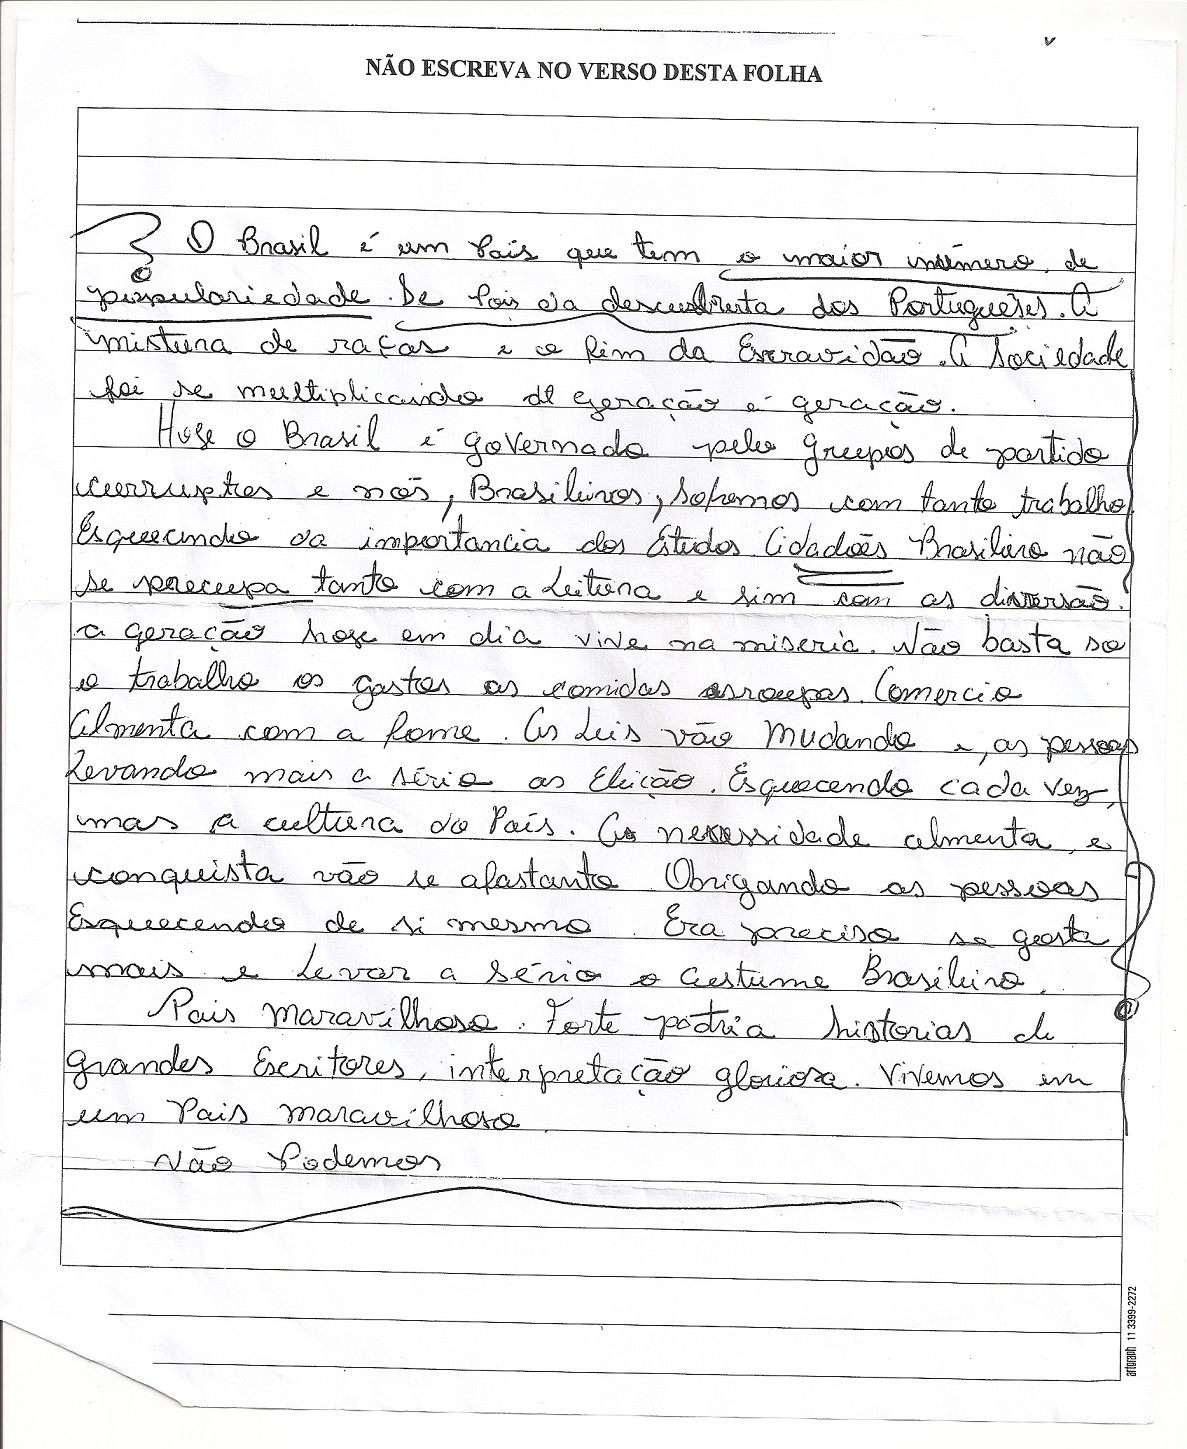 NÃO ESCREVA NO VERSO DESTA FOLHA
O Brasil é um Pais que tem o maior número de
populariedade. De Pois da descubrta dos Portugueses. A
mistura de raças e o fim da Escravidão. A Sociedade
foi se multiplicando de geração e geração.
Hoje o Brasil é governado pelo grupos de partido
currruptos e nós, Brasileiros, sofremos com tanto trabalho
Esquecendo da importancia dos Estudos. Cidadões Brasileiro não
se precupa tanto com a Leitura e sim com as diversão.
a geração hoje em dia vive na miseria. Não basta so
o trabalho os gastos as comidas as roupas. Comercio
Almenta com a fome. As Leis vão Mudando e, as pessoas
Levando mais a sério as Eleição. Esquecendo cada vez,
mas a cultura do País. As necessidade almenta, e
conquista vão se afastanto Obrigando as pessoas
Esquecendo de si mesmo. Era preciso se gosta
mais e Levar a sério o Custume Brasileiro.
Pais Maravilhoso. Forte pátria historias de
grandes Escritores, interpretação gloriosa. Vivemos em
um Pais maravilhoso.
Não Podemos
artgraph 11 3399-2272